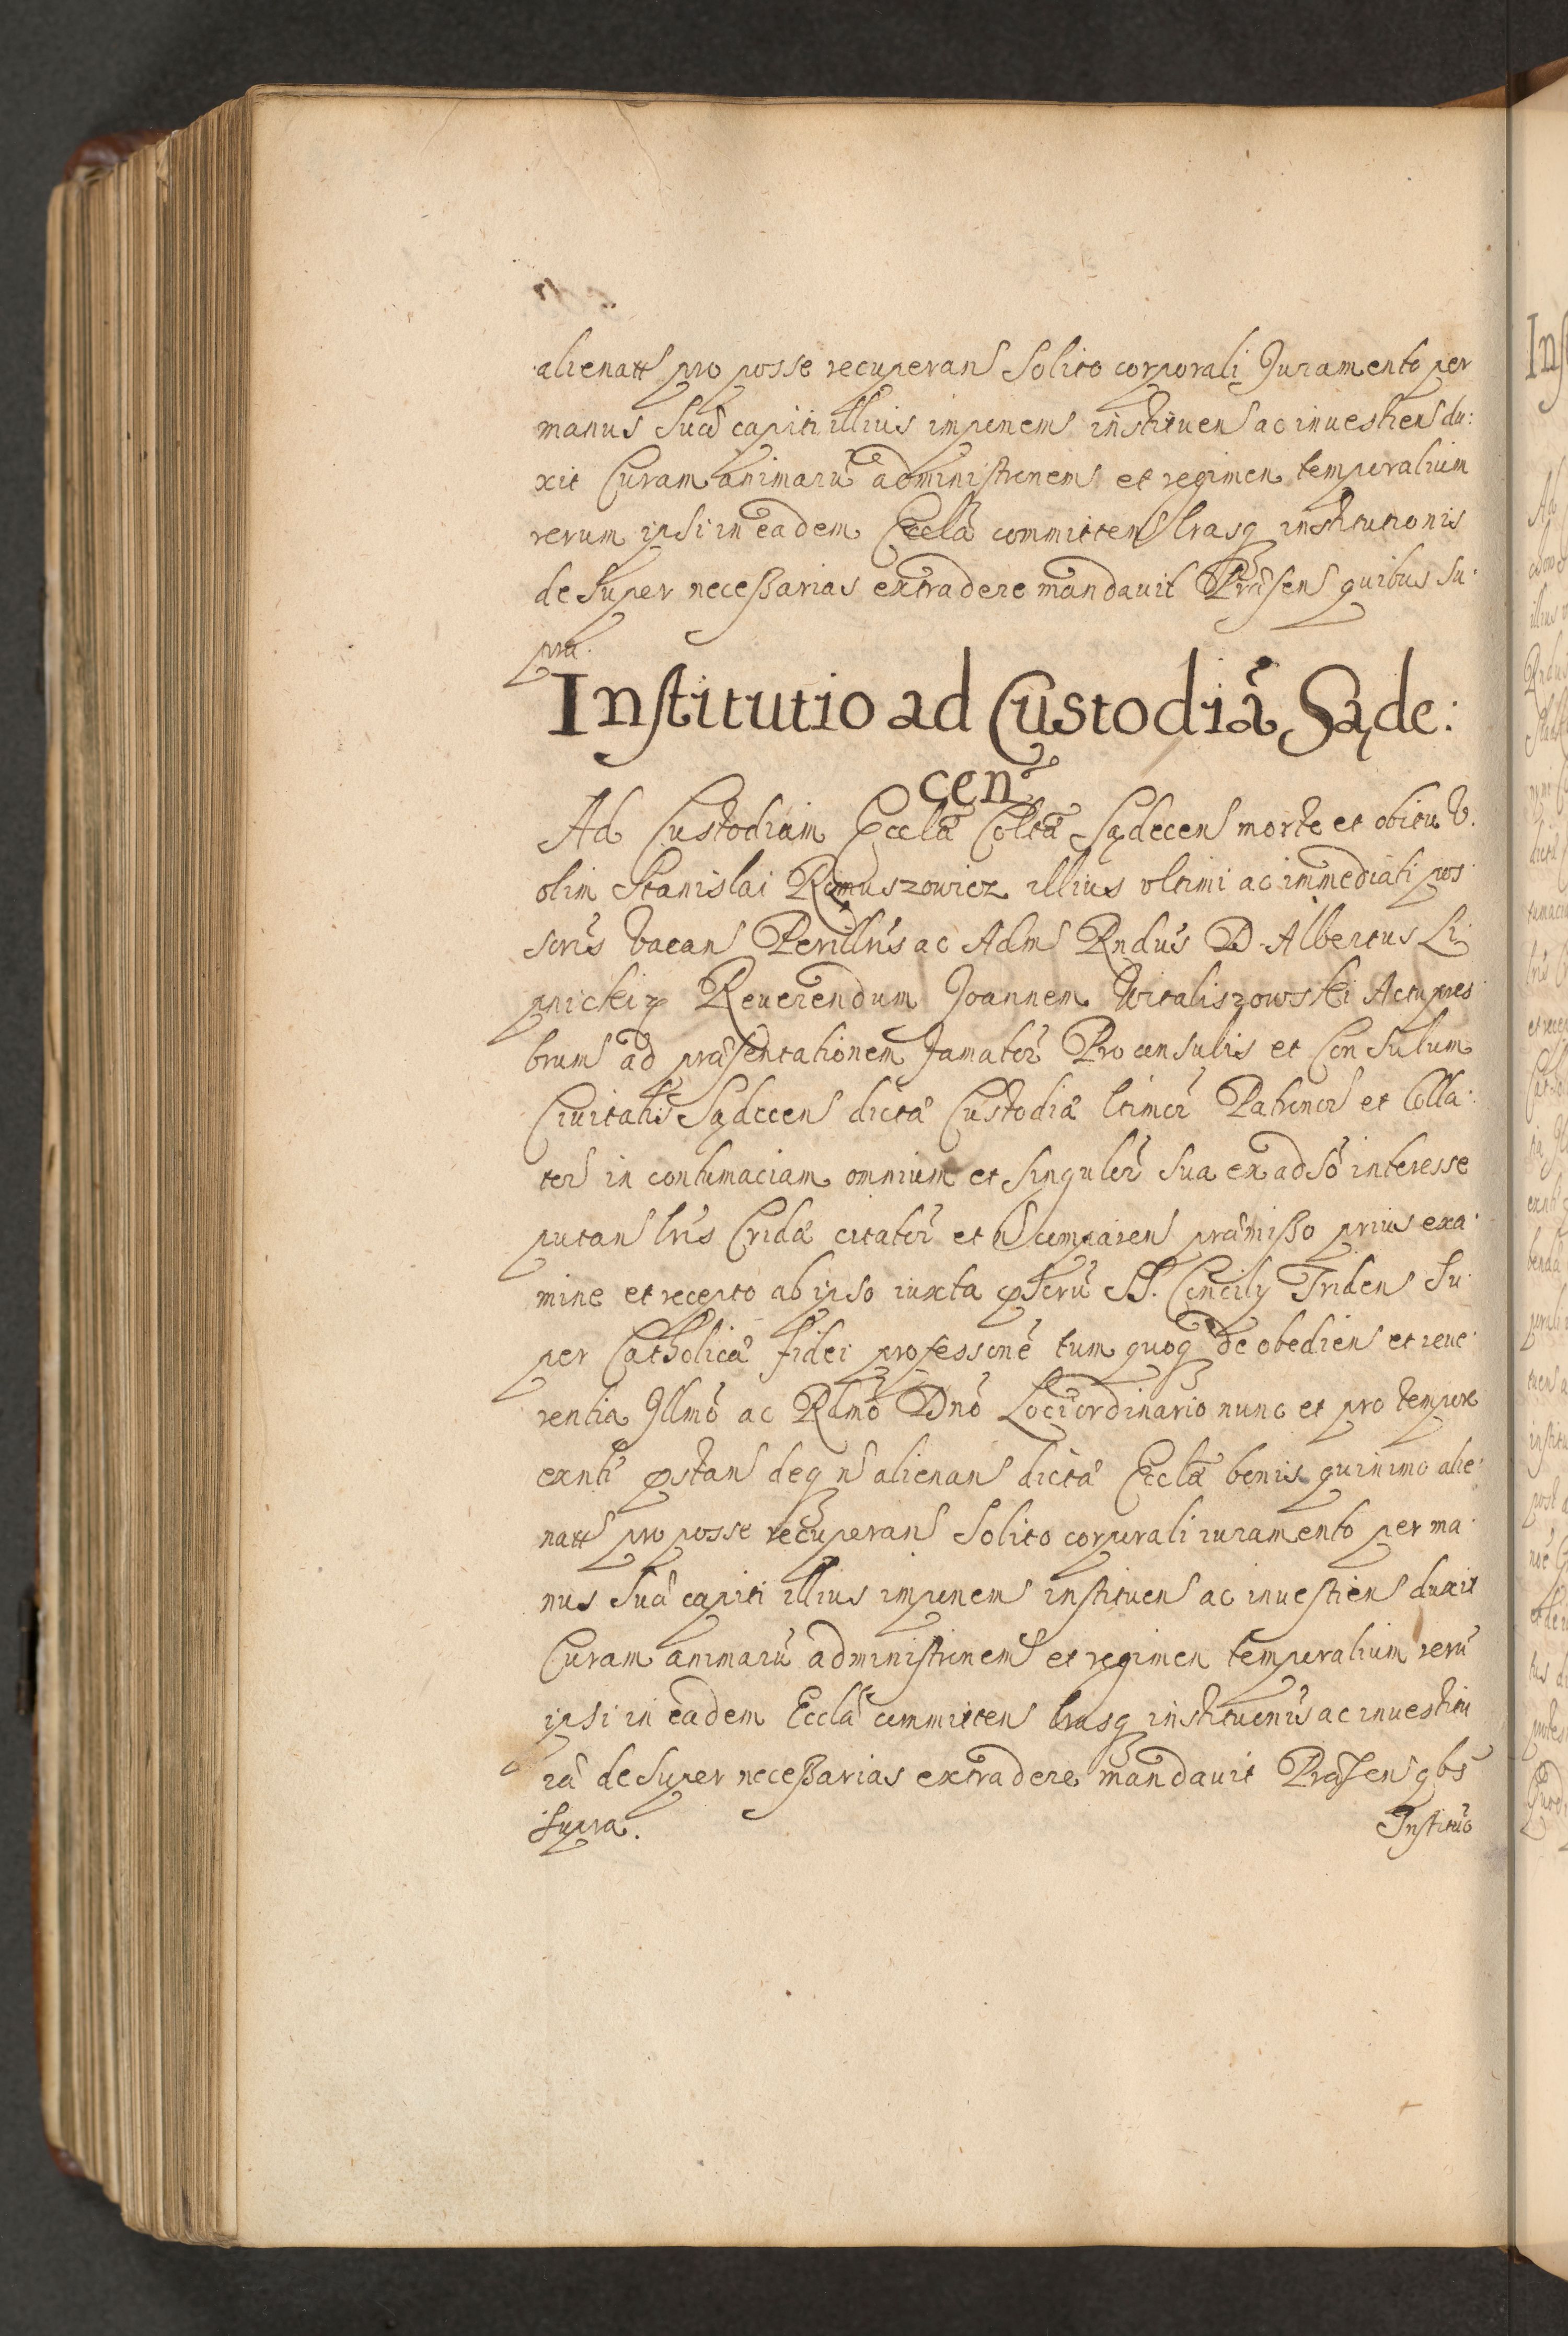 alienatt pro posse recuperans solito corporali Juramento per
manus suae capiti illius imponems instituens ac inuestiens du:
xit Curam animarũ administrñems et regimen temporalium
rerum ipsi in eadem Eccla committens lrasq institutionis
desuper necessarias extradere mandauit Præsens quibus su:
pra.
Institutio ad Custodiã Sąde:
cen
Ad Custodiam Eccla Colta Sądecens morte et obitu V.
olim Stanislai Romuszowicz illius vltimi ac immediati pos:
scris vacans Perillris ac Adms Rndus D. Albertus Li:
pnicki Reuerendum Joannem Witaliszowski Actu pres:
brum ad præsentationem famator Proconsulis et Consulum
Ciuitatis Sądecens dictæ Custodiæ ltimor Patronor et Colla:
tor in contumaciam omnium et singulor sua ex adso interesse
putans lris Cridæ citator et n comparens præmisso prius exa:
mine et recepto ab ipso iuxta SS. Concily Tridens su:
per Catholica fidei professione tum quoq de obediens et reue:
rentia Illmo ac Rdmo Dno Loci ordinario nunc et pro tempore
exnti pstans deq n alienans dictæ Eccla bonis quinimo alie:
natt pro posse recuperans solito corporali iuramento per ma:
nus suæ capiti illius imponems instituens ac inuestiens duxit
Curam animarũ administrñems et regimen temporalium rerũ
ipsi in eadem Eccla committens lrasq institucnis ac inuestitu
ræ desuper necessarias extradere mandauit Præsens qbs
supra.
Institũo